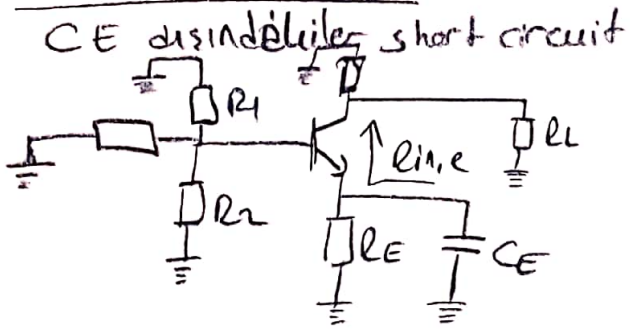 CE dışındakiler short circuit
R1
R2
Rin,e
RL
RE
CE